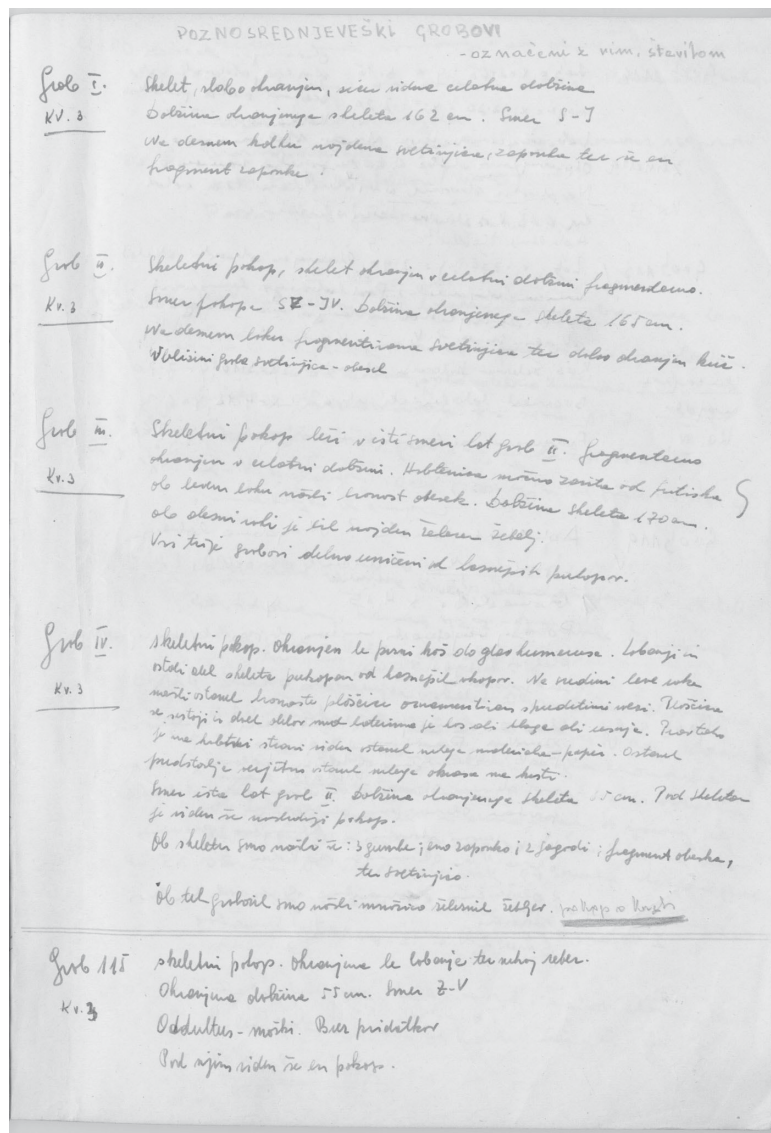 POZNOSREDNJEVEŠKI GROBOVI
- označeni z rim. številom
Grob I.
Kv. 3
Skelet, slabo ohranjen, sicer vidna celotna dolžina
Dolžina ohranjenega skeleta 162 cm. Smer S-J
Na desnem kolku najdena svetinjica, zaponka ter še en
fragment zaponke.
Grob II.
Kv. 3
Skeletni pokop, skelet ohranjen v celotni dolžini fragmentarno.
Smer pokopa SZ-JV. Dolžina ohranjenega skeleta 165 cm.
Na desnem boku fragmentirana svetinjica ter dobro ohranjen križ.
V bližini groba svetinjica - obesek
Grob III.
Kv. 3
Skeletni pokop leži v isti smeri kot grob II. fragmentarno
ohranjen v celotni dolžini. Hrbtenica močno zavita od pritiska
ob levem boku našli bronast obesek. Dolžina skeleta 170 cm.
ob desni roki je bil najden železen žebelj.
Vsi trije grobovi delno uničeni od kasnejših pokopov.
Grob IV.
Kv. 3
skeletni pokop. Ohranjen le prsni koš do glav humerusa. Lobanja in
ostali del skeleta prekopan od kasnejših vkopov. Na sredini leve roke
našli ostanek bronaste ploščice ornamentiran s spletenimi vezi. Ploščica
se sestoji iz dveh delov med katerima je kos ali blaga ali usnja. Prav tako
je na hrbtni strani viden ostanek nekega materiala - papir. Ostanek
predstavlja verjetno ostanek nekega okrasa na krsti.
Smer ista kot grob II. Dolžina ohranjenega skeleta cm. Pod skeletom
je viden še naslednji pokop.
Ob skeletu smo našli še: 3 gumbe; eno zaponko; 2 jagodi; fragment obeska,
ter svetinjico.
Ob teh grobovih smo našli množico železnih žebljev. pokop v krsti
Grob 115
Kv. 3
skeletni pokop. Ohranjena le lobanja ter nekaj reber.
Ohranjena dolžina 55 cm. Smer Z-V
Oddultus - moški. Brez pridatkov
Pod njim viden še en pokop.